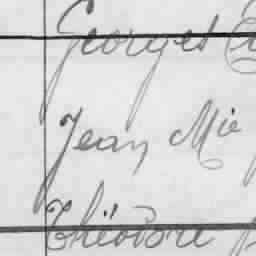 Georges
Jean Mie
Théodore